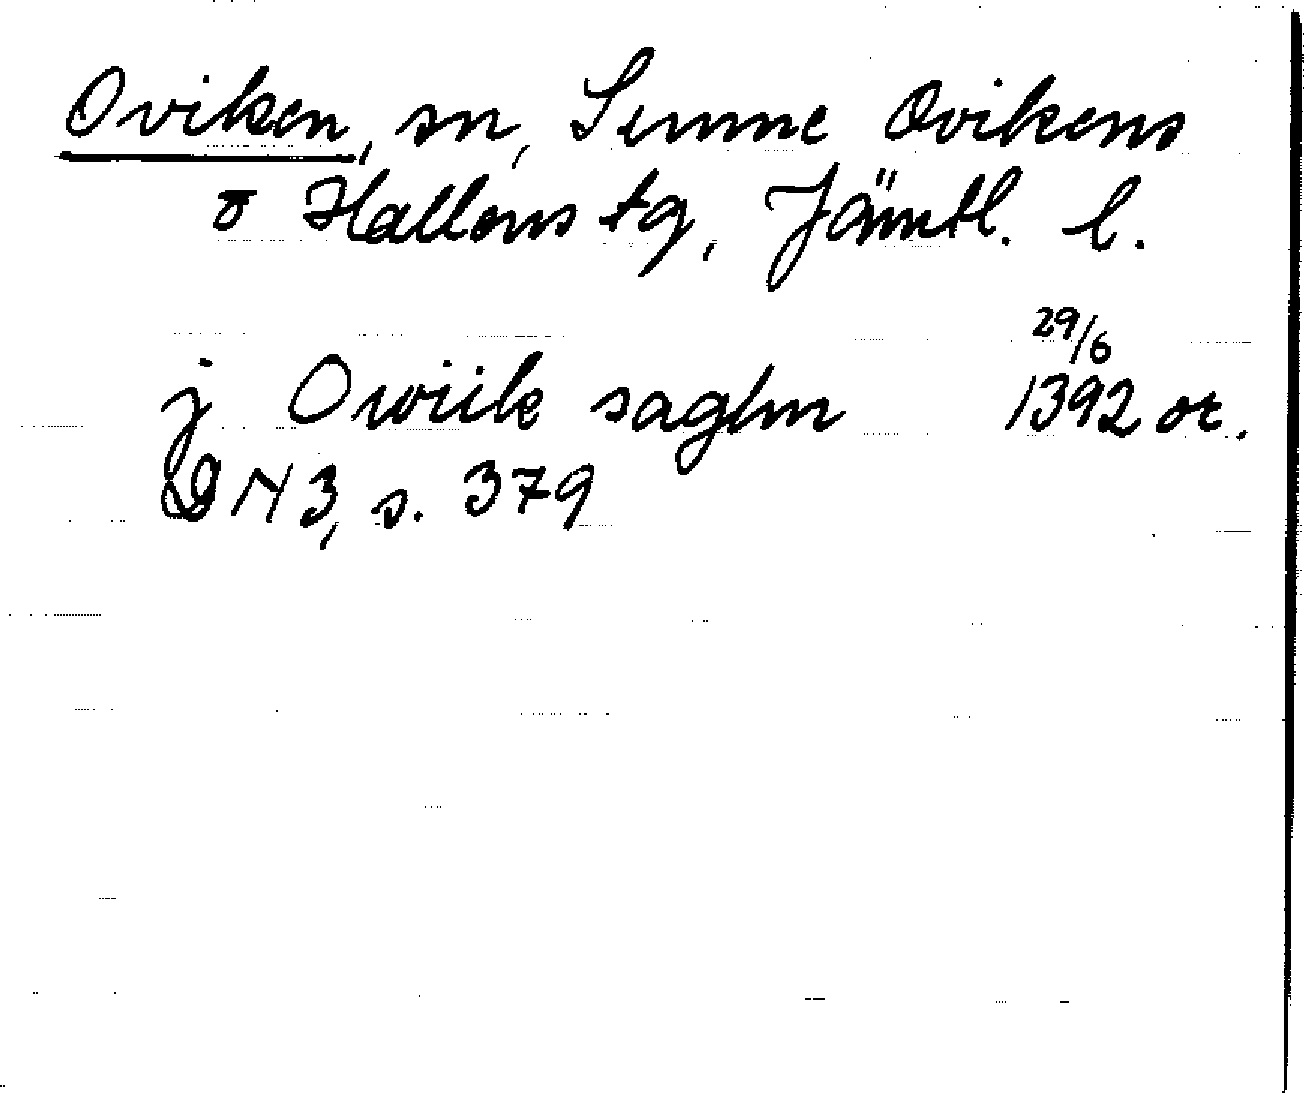 Oviken, sn, Sunne Ovikens
o Hallens tg, Jämtl. l.
29/6
j Owiik saghn 1392 or.
DN 3, s. 379